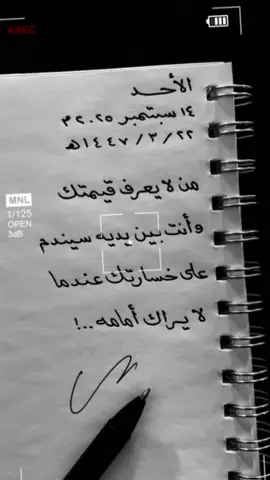 REC
الأحد
١٤ سبتمبر ٢٠٢٥ م
٢٢ / ٣ / ١٤٤٧ هـ
MNL
1/125
OPEN
3dB
من لا يعرف قيمتك
وأنت بين يديه سيندم
على خسارتك عندما
لا يراك أمامه ..!